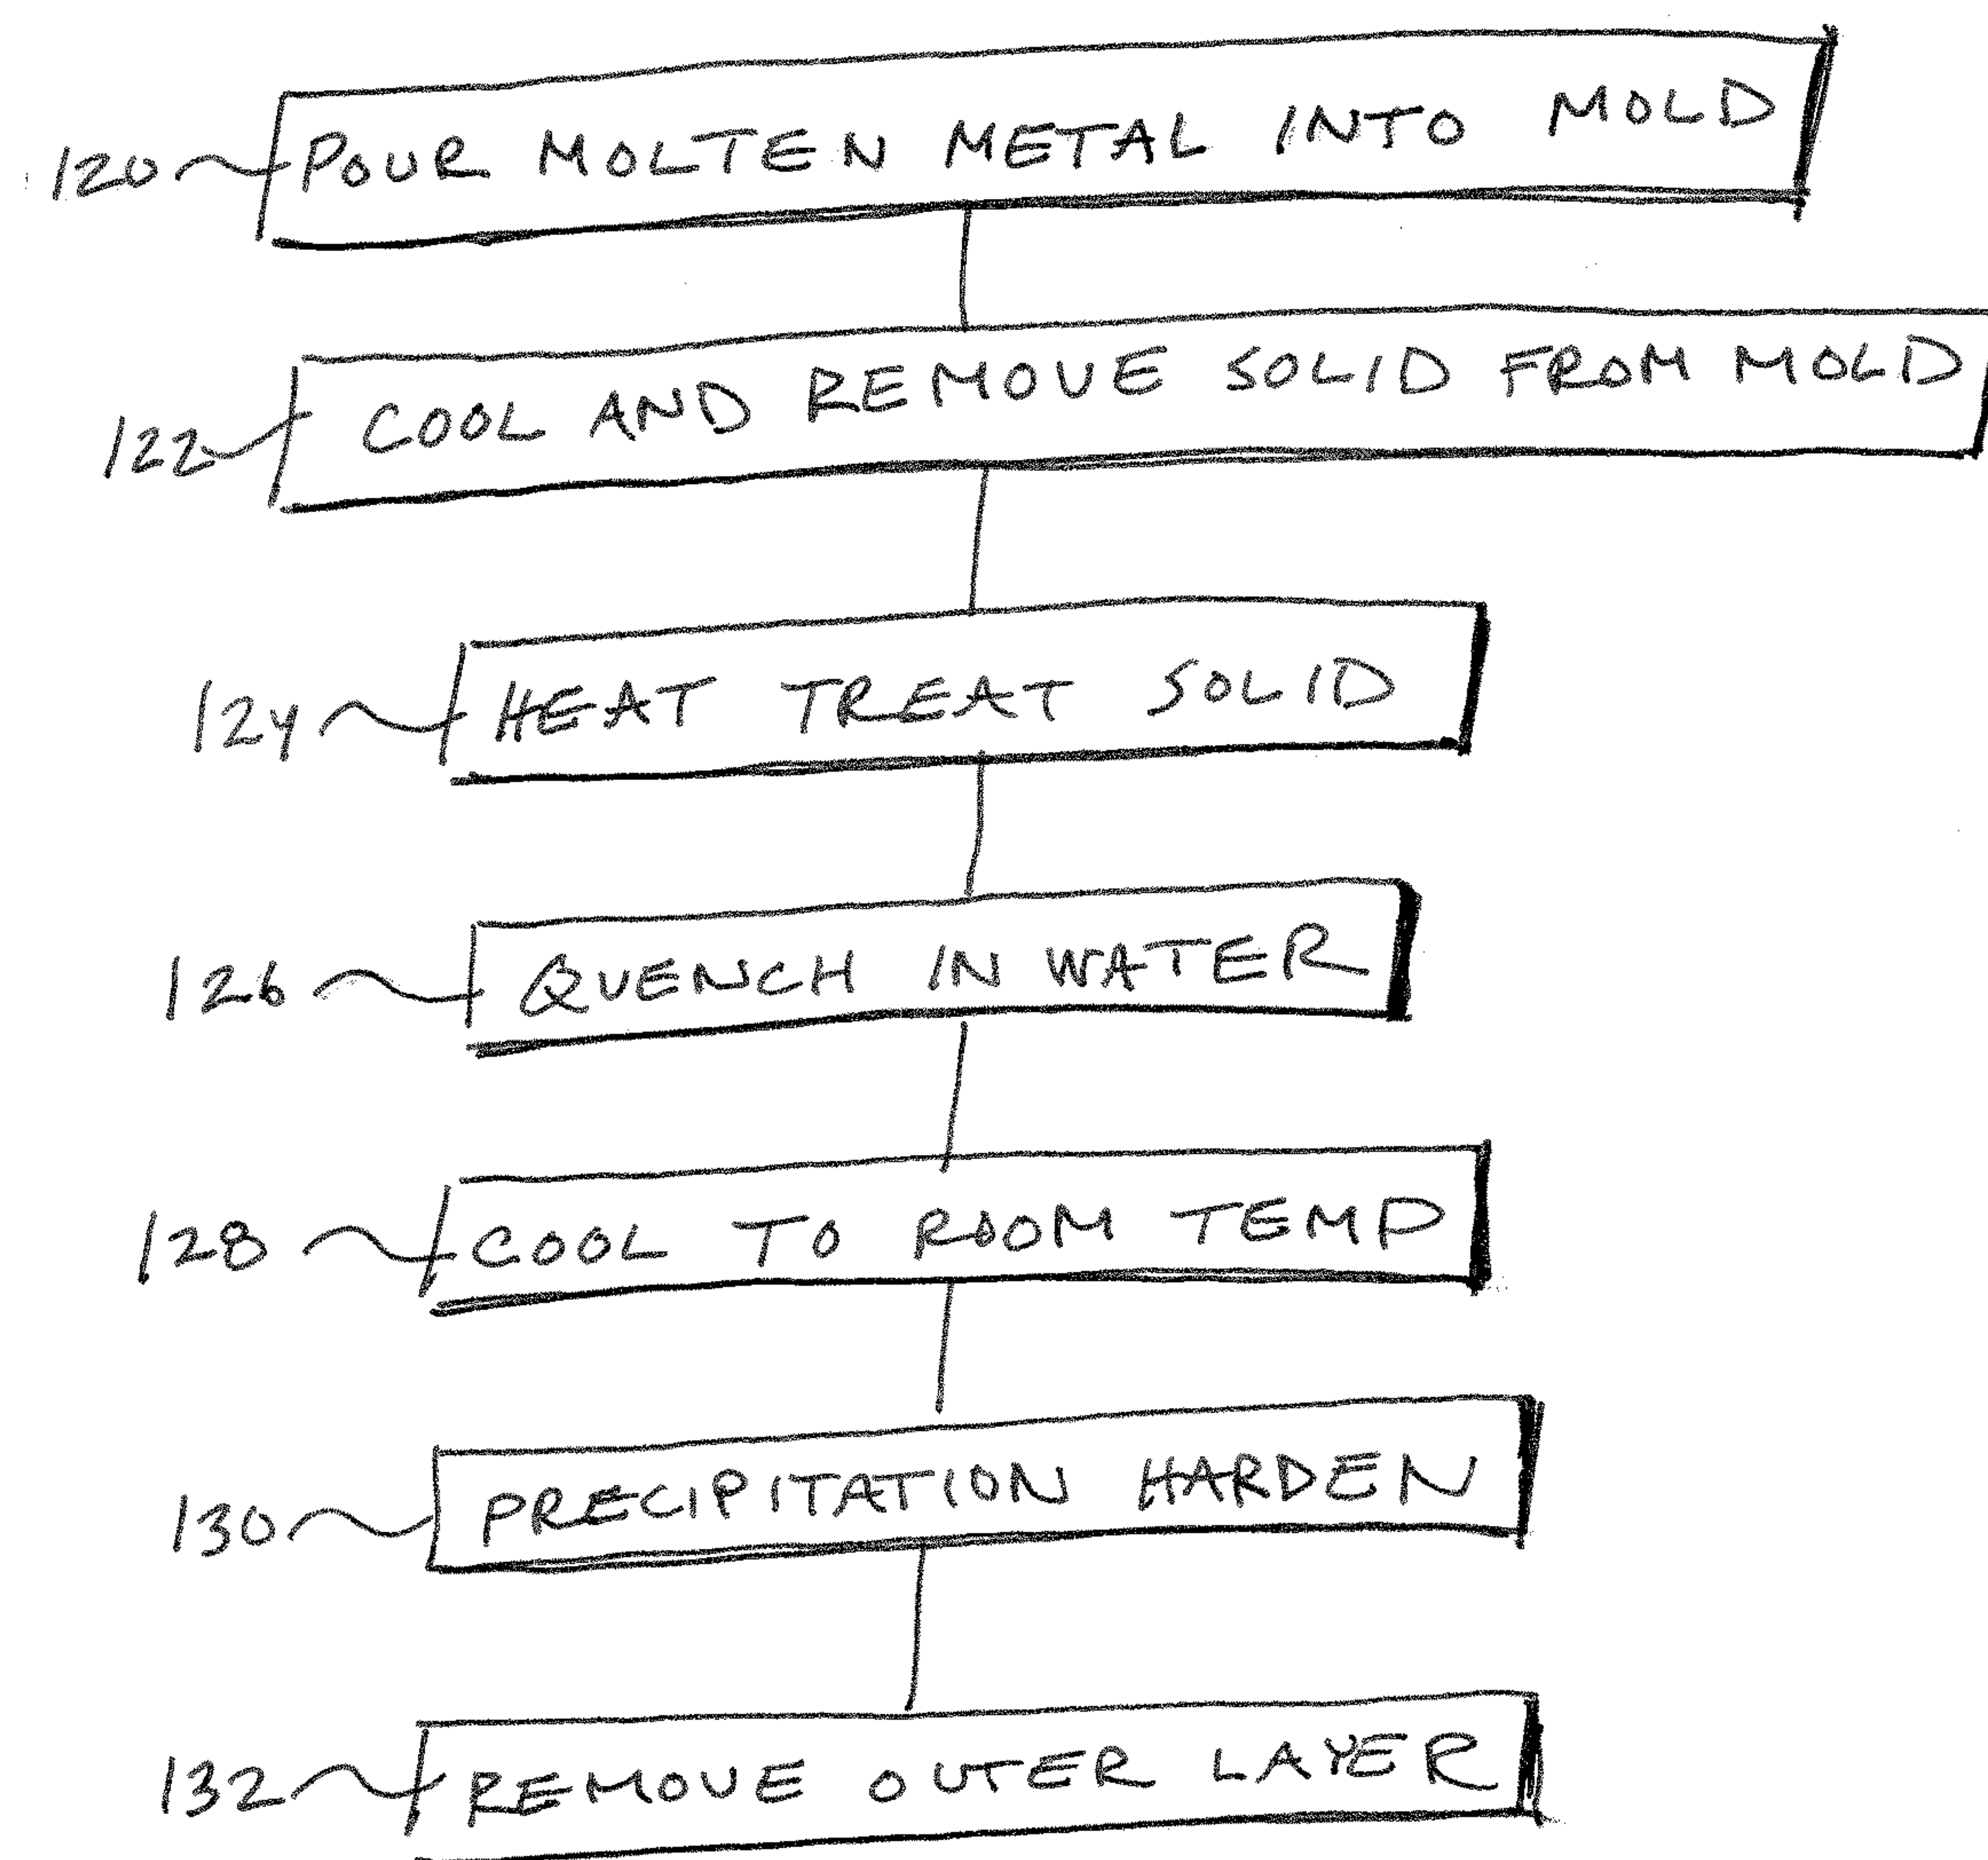 120 POUR MOLTEN METAL INTO MOLD
122 COOL AND REMOVE SOLID FROM MOLD
124 HEAT TREAT SOLID
126 QUENCH IN WATER
128 COOL TO ROOM TEMP
130 PRECIPITATION HARDEN
132 REMOVE OUTER LAYER